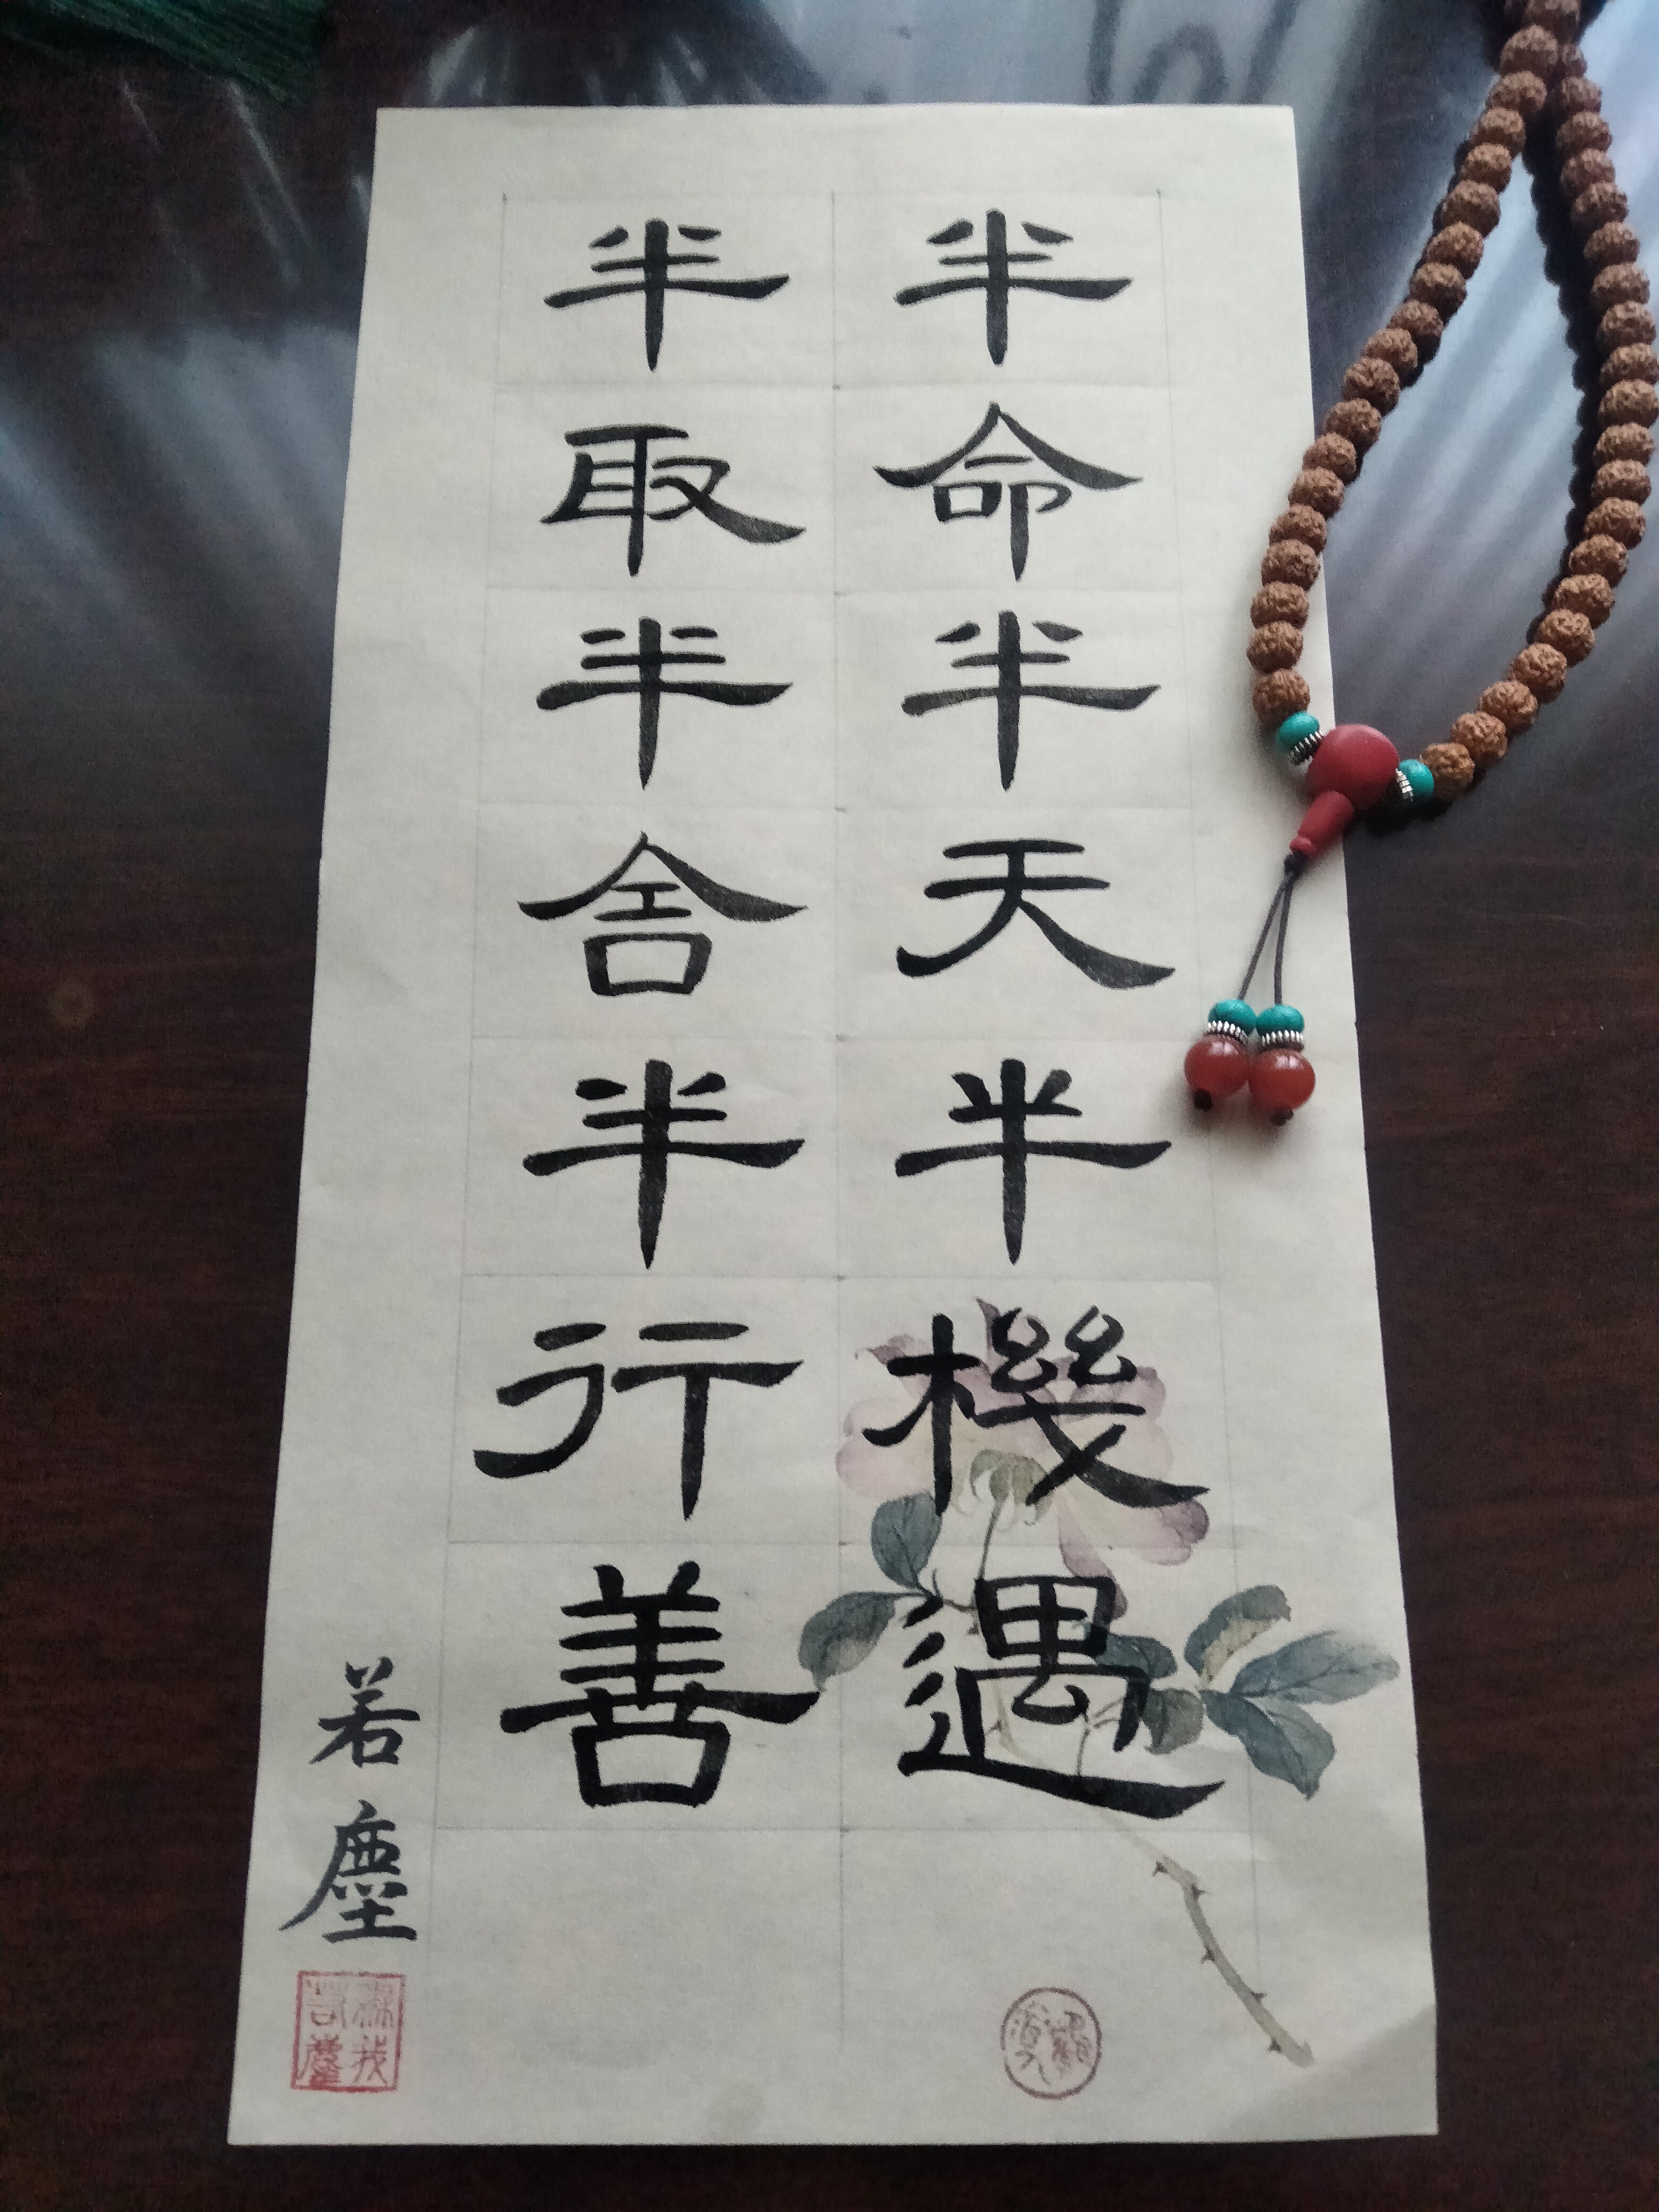 半命半天半機遇
半取半舍半行善
若塵